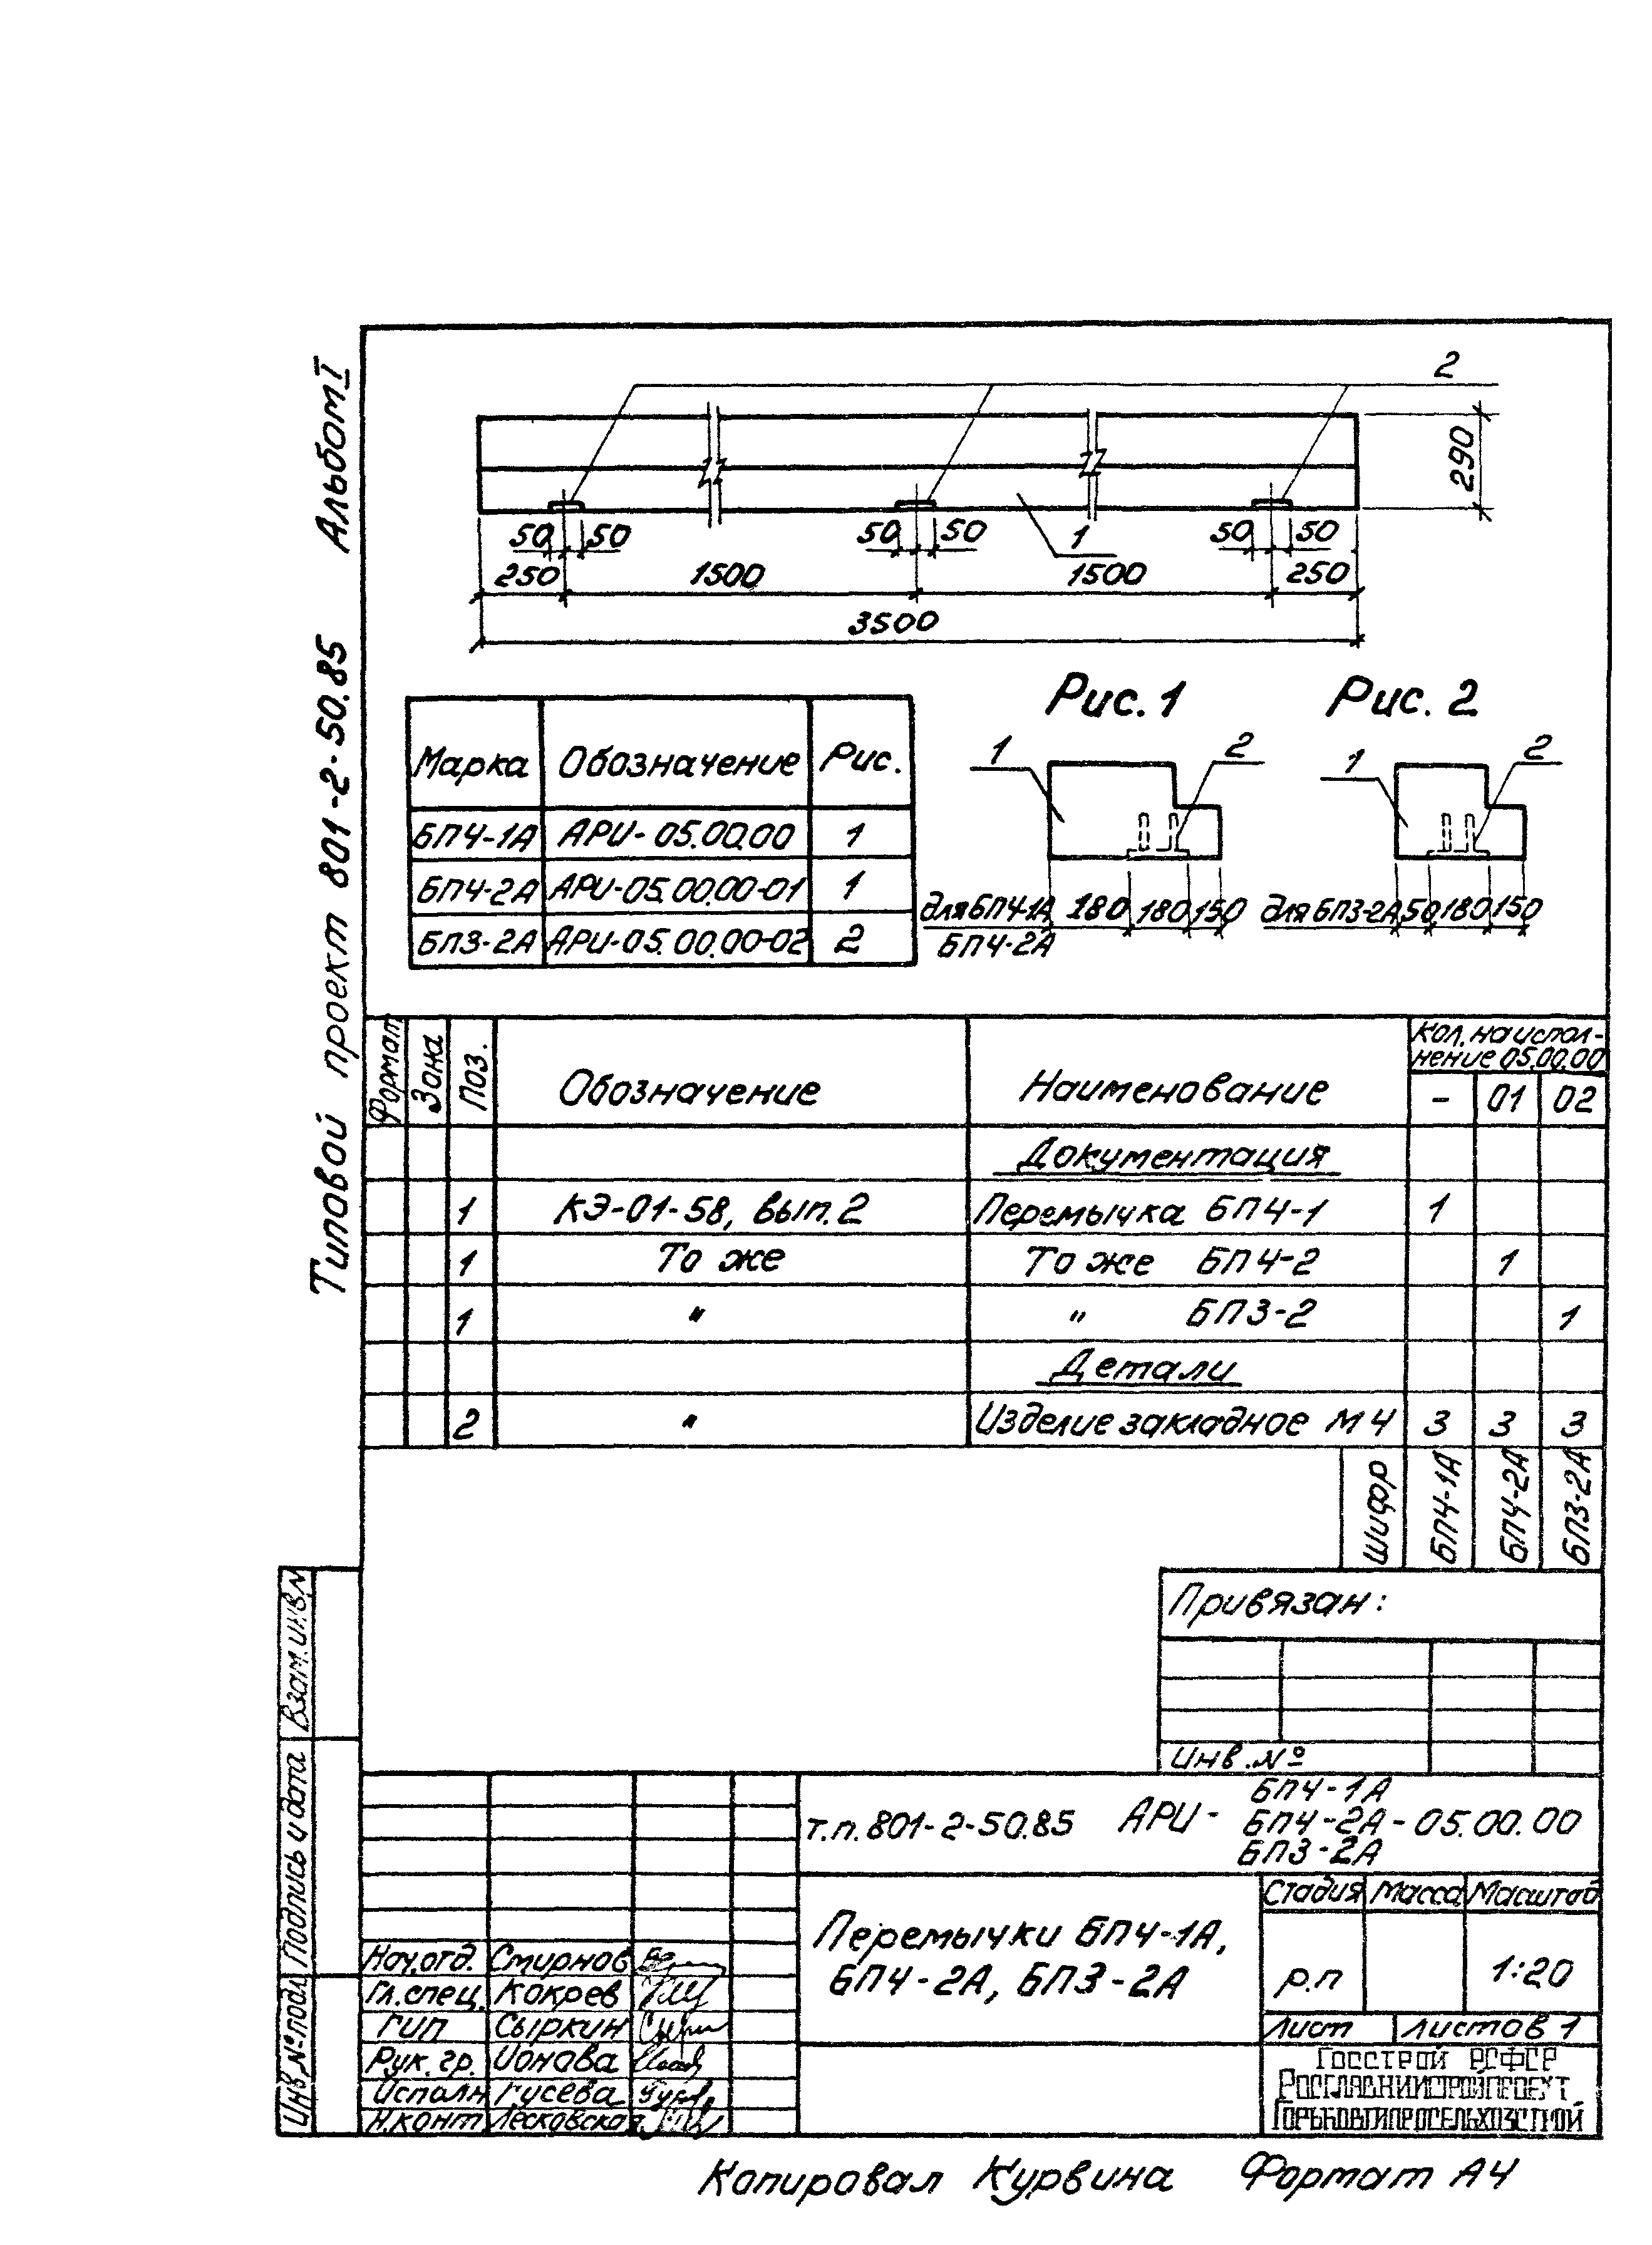 Типовой проект 801-2-50.85 Альбом I
2
290
50 50 50 50 50 50
1
250 1500 1500 250
3500
Рис. 1 Рис. 2
1 2 1 2
для БП4-1А 180 180 150
БП4-2А
для БП3-2А 50 180 150
Марка Обозначение Рис.
БП4-1А АРИ-05.00.00 1
БП4-2А АРИ-05.00.00-01 1
БП3-2А АРИ-05.00.00-02 2
Формат Зона Поз. Обозначение Наименование Кол. на испол-
нение 05.00.00
- 01 02
Документация
1 КЭ-01-58, вып. 2 Перемычка БП4-1 1
1 То же То же БП4-2 1
1 " " БП3-2 1
Детали
2 " Изделие закладное М4 3 3 3
Шифр БП4-1А БП4-2А БП3-2А
Привязан:
Инв. №
Взам. инв.№
Подпись и дата
Инв. № подл
т.п. 801-2-50.85 АРИ- БП4-1А
БП4-2А - 05.00.00
БП3-2А
Перемычки БП4-1А,
БП4-2А, БП3-2А
Стадия Масса Масштаб
р.п 1:20
Лист Листов 1
Нач.отд. Смирнов
Гл.спец. Кокрев
ГИП Сыркин
Рук. гр. Ионова
Исполн Гусева
Н.конт Лесковская
Госстрой РСФСР
Росглавниистройпроект
Горьковгипросельхозстрой
Копировал Курвина Формат А4